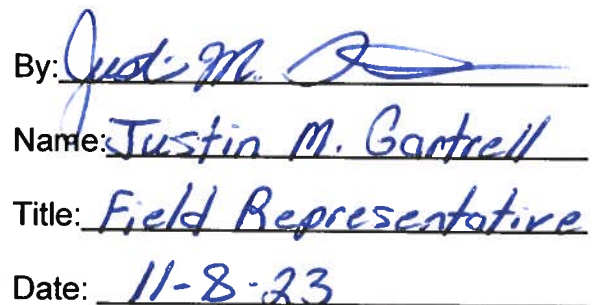 By: Justin M.
Name: Justin M. Gantrell
Title: Field Representative
Date: 11-8-23